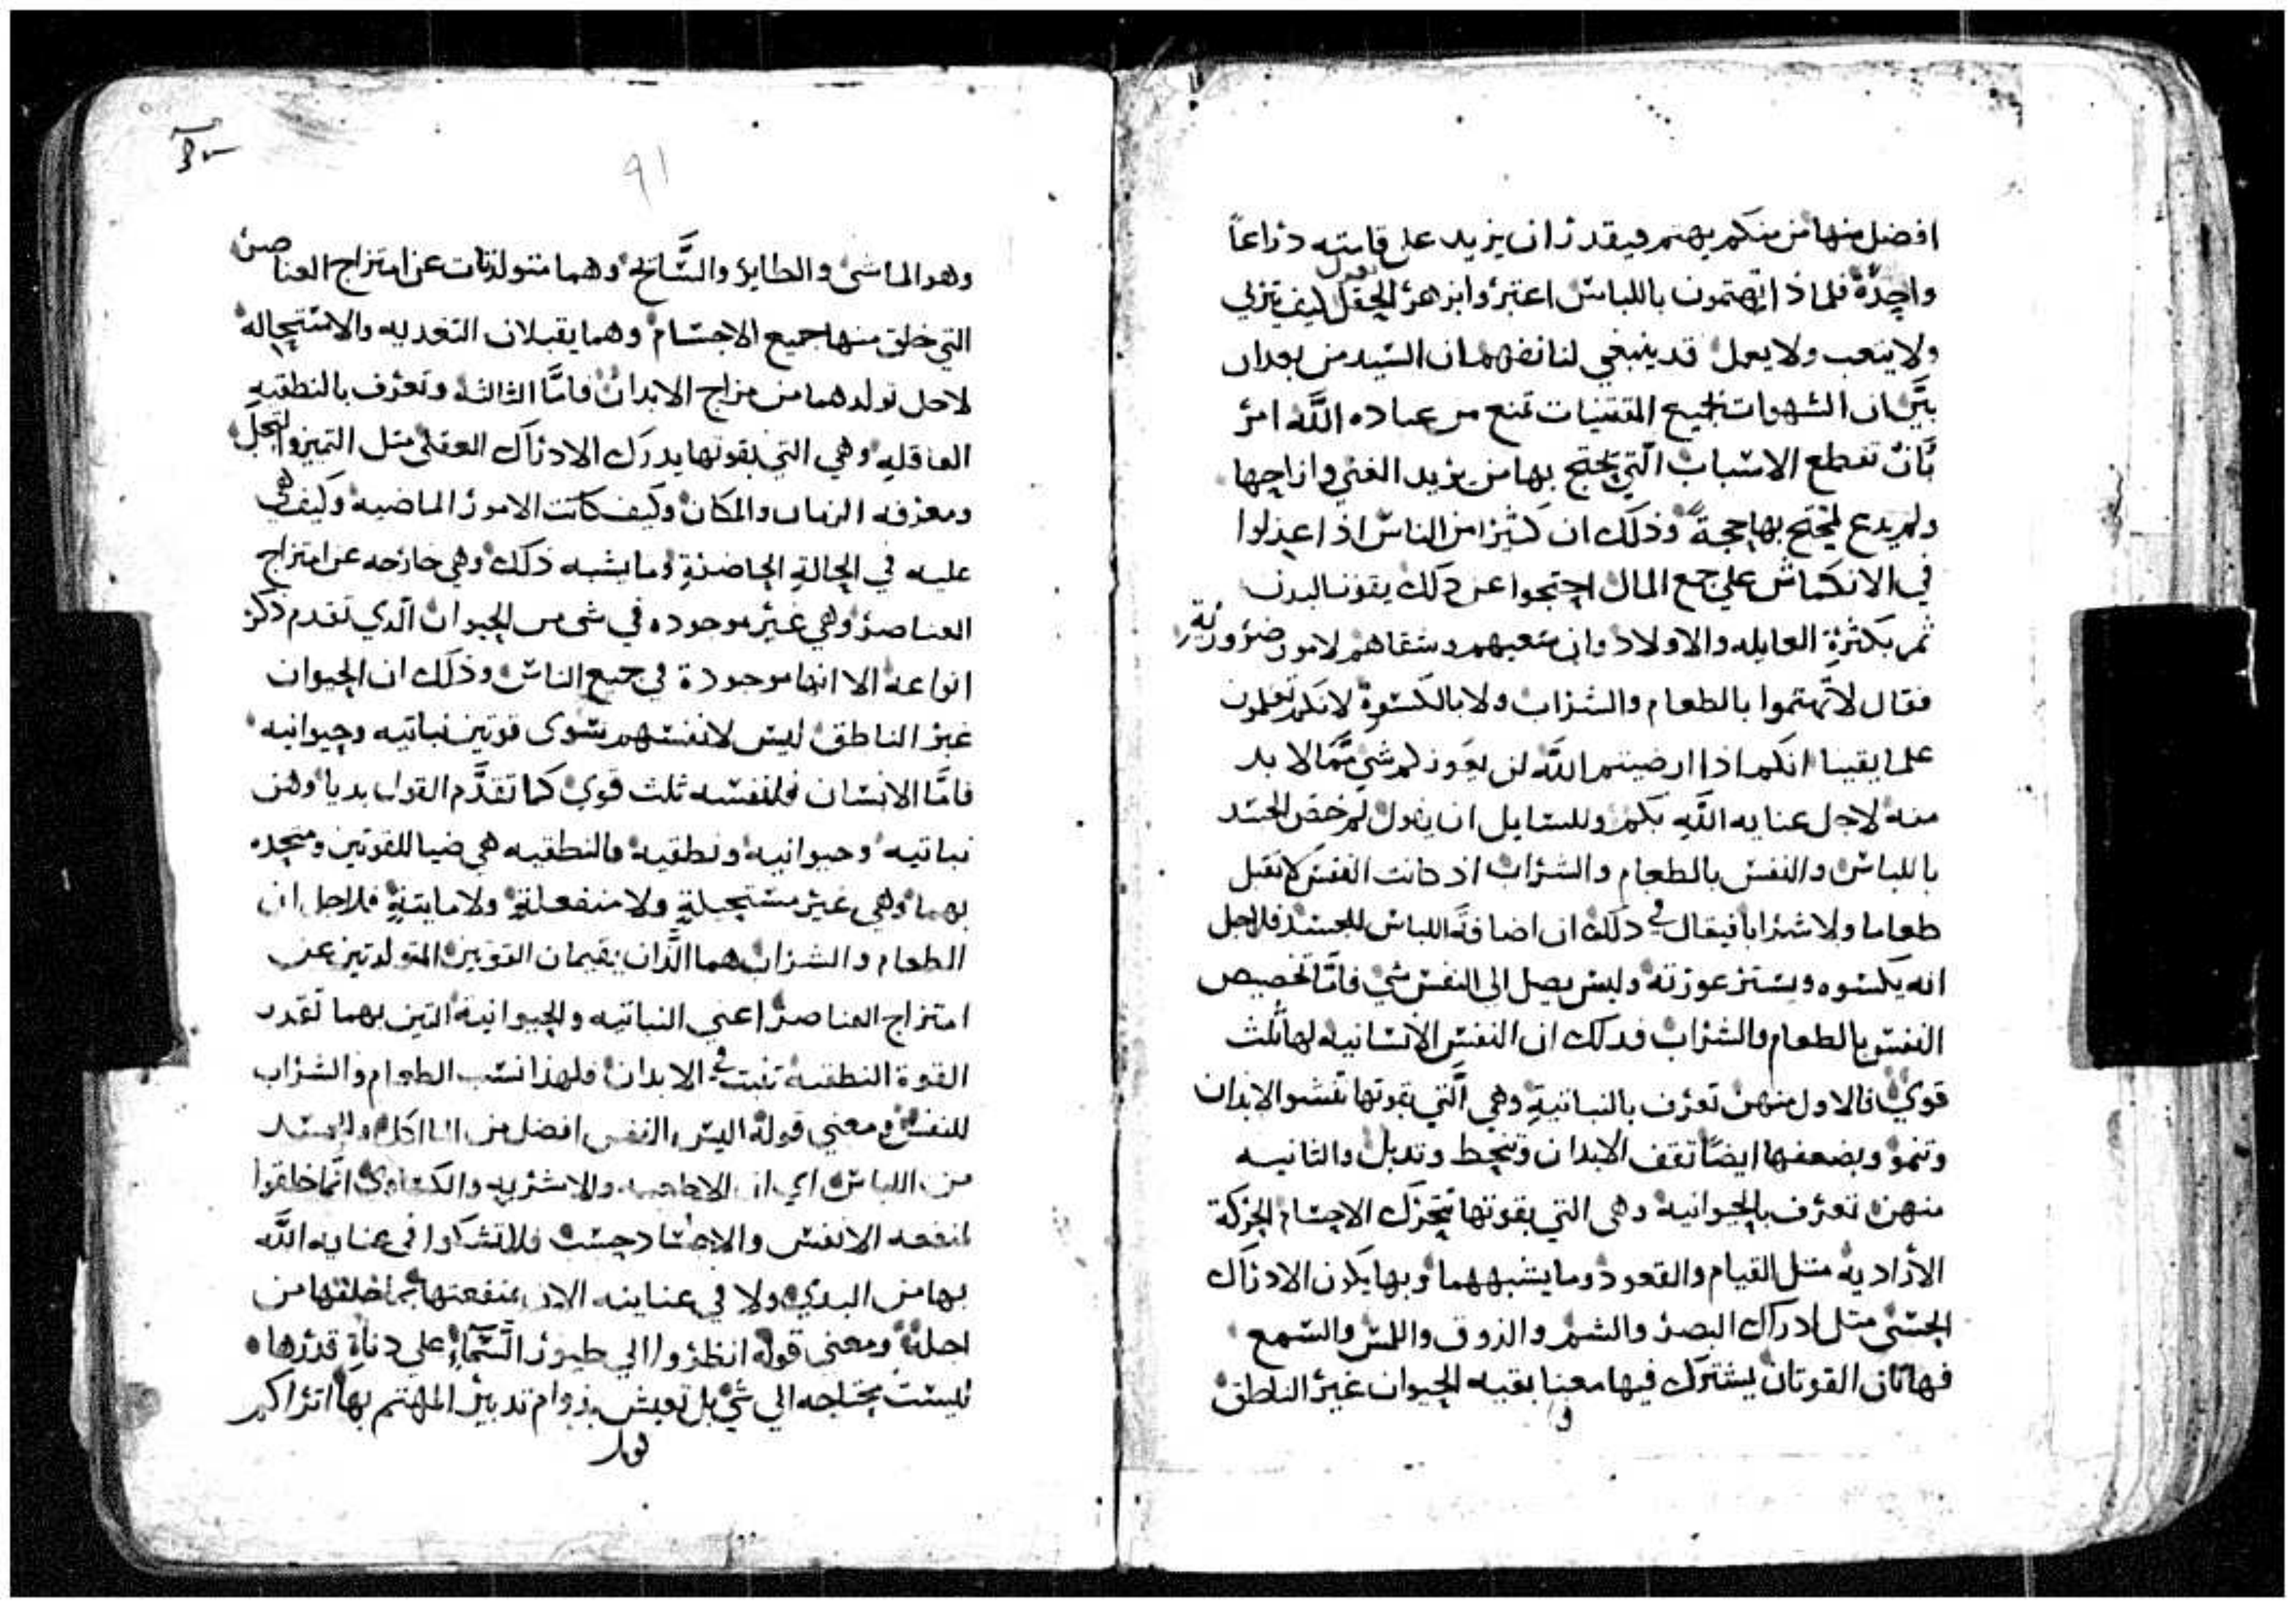 افضل منها من منكم يهتم فيقدر ان يزيد على قامته دراعاً
واحدة فلماذا تهتمون باللباس اعتبروا بزهر الحقل كيف يتزبي
ولا يتعب ولا يعمل قد ينبغي لنا نفهم ان السيد من بعد ان
بيَّن ان الشهوات لجميع المقتنيات تمنع من عباده اللَّه امر
بَّان تقطع الاسباب الَّتي يحتج بها من يريد الغني وازاحها
ولم يدع لمحتج بها حجةً وذلك ان كثيرا من الناس اذا عدلوا
في الانكماش علي جمع المال احتجوا عن ذلك بقوت البدن
ثم بكثرةِ العايله والاولاد وان تعبهم وشقاهم لامور ضروريه
فقال لا تهتموا بالطعام والشراب ولا بالكسوةِ لانكم تعلمون
علما يقينا انكم اذا ارضيتم اللَّه لن يعوزكم شي ممَّا لا بد
منه لاجل عنايه اللَّه بكم وللسايل ان يقول لم خصّ الجسد
باللباس والنفس بالطعام والشراب اذ كانت النفس لا تقبل
طعاما ولا شرابا فيقال في ذلك ان اضافَة اللباس للجسد فلاجل
انه يكسوه ويستر عورته وليس يصل الى النفس شي فامَّا تخصيص
النفس بالطعام والشراب فدلك ان النفس الانسانيه لها ثلث
قوي فالاول منهن تعرف بالنباتيةِ وهي الَّتي بقوتها تنشو الابدان
وتنمو وبضعفها ايضًا تقف الابدان وتنحط وتدبل والثانيه
منهن تعرف بالحيوانيه وهى التي بقوتها تتحرّك الاجسام الحركة
الأراديه مثل القيام والقعود وما يشبههما وبها يكون الادراك
الحسّي مثل ادراك البصر والشم والذوق واللمس والسمع
فهاتان القوتان يشترك فيها معنا بقيه الحيوان غير الناطق
و
٩١
وهو الماشي والطاير والسَّابح وهما متولدتان عن امتزاج العناصر
التي خلق منها جميع الاجسام وهما يقبلان التغديه والاستحاله
لاجل تولدهما من مزاج الابدان فامَّا الثالثه وتعرف بالنطقيهِ
العاقليه وهي التي بقوتها يدرك الادراك العقلي مثل التميز والتخيل
ومعرفه الزمان والمكان وكيف كانت الامور الماضيه وكيف هي
عليه في الحالةِ الحاضرةِ وما يشبه ذلك وهي خارجه عن امتزاج
العناصر وهي غير موجوده في شي من الحيوان الَّدي تقدم ذكر
انواعه الا انها موجودة في جميع الناس وذلك ان الحيوان
غير الناطق ليس لانفسهم سوى قوتين نباتيه وحيوانيه
فامَّا الانسان فلنفسه ثلث قوي كما تقدَّم القول بديا وهن
نباتيه وحيوانيه ونطقيه فالنطقيه هي ضيا للقوتين ومتحده
بهما وهي غير مستحيلةٍ ولا منفعلةٍ ولا مايتةٍ فلاجل ان
الطعام والشراب هما الَّدان يقيمان القوتين المتولدتين عن
امتزاج العناصر اعني النباتيه والحيوانيه التين بهما تقدر
القوة النطقيه تثبت في الابدان فلهذا نسب الطعام والشراب
للنفس ومعني قوله اليس النفس افضل من الماكل والجسد
من اللباس اي ان الاطعمه والاشربه والكساوي انَّما خلقوا
لمنفعه الانفس والاجساد حسب فلا تشكوا في عنايه اللَّه
بها من البدي ولا في عنايته الان بمنفعتها بما خلقها من
اجله ومعني قوله انظروا الي طيور السَّماءِ علي دناةِ قدرها
ليست بحتاجه الي شي بل تعيش بدوام تدبير المهتم بها اتراكم